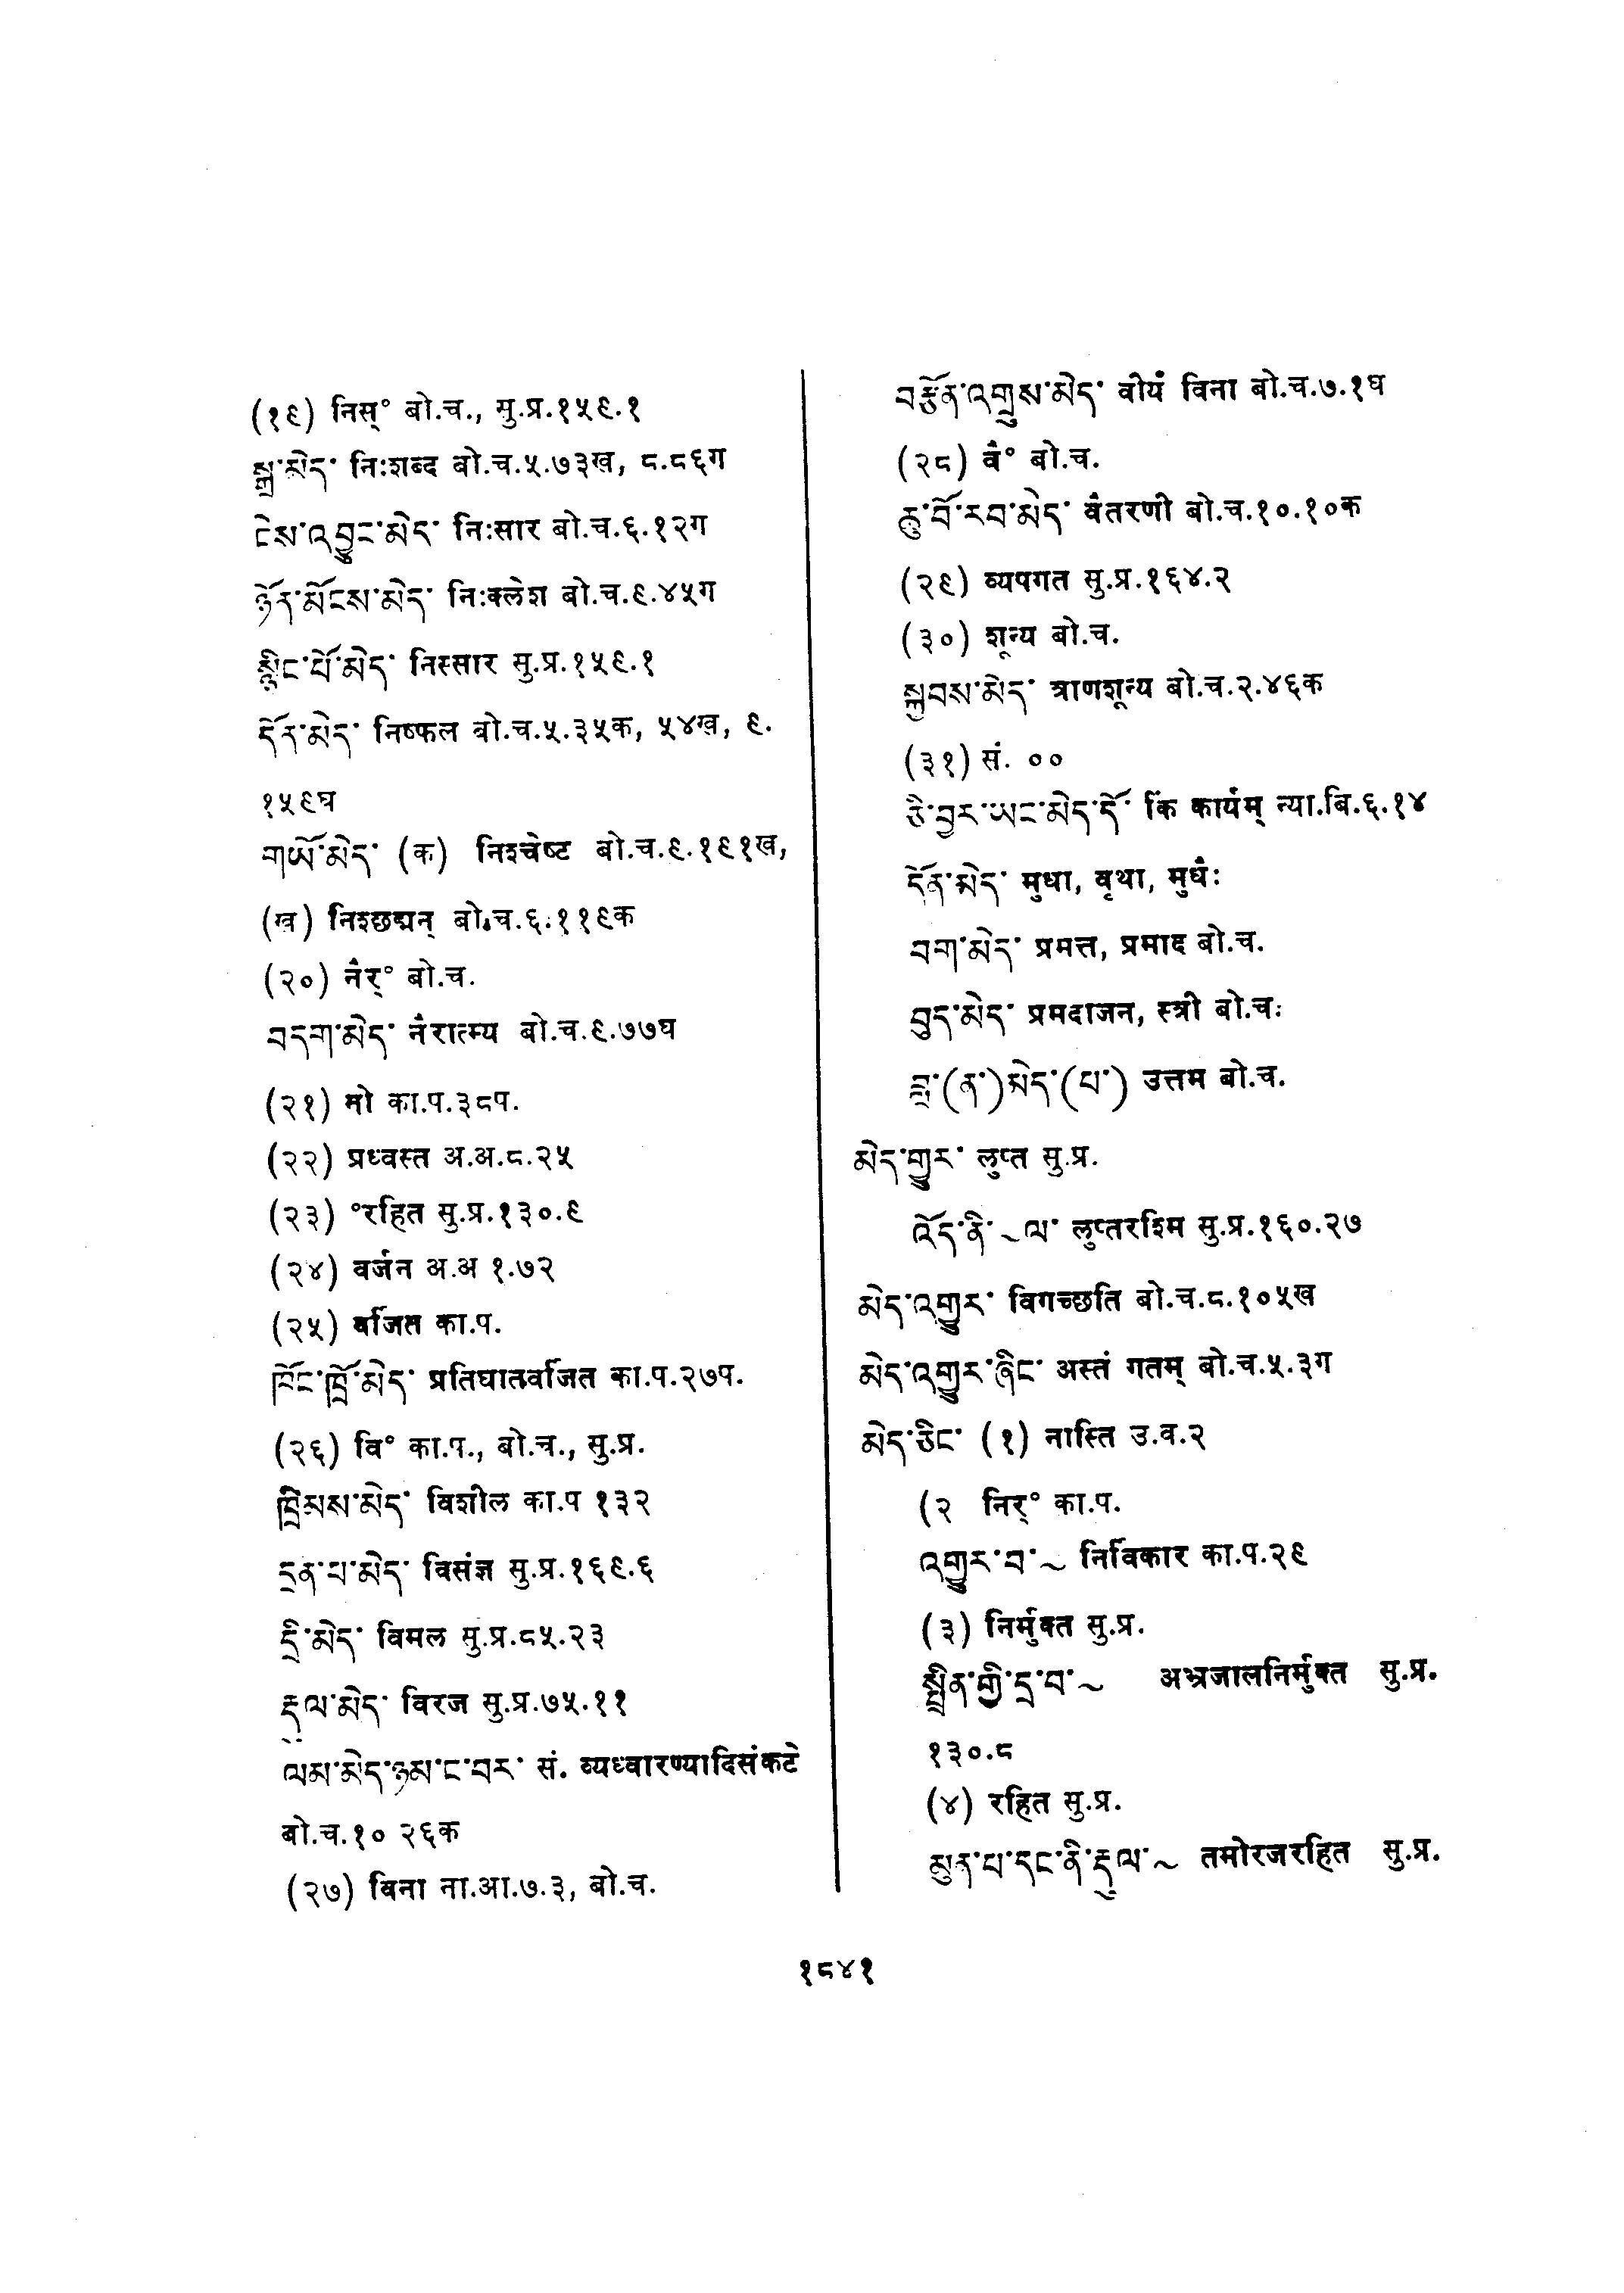 (१९) निस्° बो.च., सु.प्र.१५९.१
སྒྲ་མེད་ निःशब्द बो.च.५.७३ख, ८.८६ग
ངེས་འབྱུང་མེད་ निःसार बो.च.६.१२ग
ཉོན་མོངས་མེད་ निःक्लेश बो.च.९.४५ग
སྙིང་པོ་མེད་ निस्सार सु.प्र.१५९.१
དོན་མེད་ निष्फल बो.च.५.३५क, ५४ख, ९.
१५९घ
གཡོ་མེད་ (क) निश्चेष्ट बो.च.९.१९१ख,
(ख) निश्छद्मन् बो.च.६.११९क
(२०) नैर्° बो.च.
བདག་མེད་ नैरात्म्य बो.च.९.७७घ
(२१) मो का.प.३८प.
(२२) प्रध्वस्त अ.अ.८.२५
(२३) °रहित सु.प्र.१३०.९
(२४) वर्जन अ.अ १.७२
(२५) वर्जित का.प.
ཁོང་ཁྲོ་མེད་ प्रतिघातवर्जित का.प.२७प.
(२६) वि° का.प., बो.च., सु.प्र.
ཁྲིམས་མེད་ विशील का.प १३२
དྲན་པ་མེད་ विसंज्ञ सु.प्र.१६९.६
དྲི་མེད་ विमल सु.प्र.८५.२३
རྡུལ་མེད་ विरज सु.प्र.७५.११
ལམ་མེད་ཉམ་ང་བར་ सं. व्यध्वारण्यादिसंकटे
बो.च.१० २६क
(२७) विना ना.आ.७.३, बो.च.
བརྩོན་འགྲུས་མེད་ वीर्यं विना बो.च.७.१घ
(२८) वै° बो.च.
ཆུ་བོ་རབ་མེད་ वैतरणी बो.च.१०.१०क
(२९) व्यपगत सु.प्र.१६४.२
(३०) शून्य बो.च.
སྐྱབས་མེད་ त्राणशून्य बो.च.२.४६क
(३१) सं. ००
ཅི་བྱར་ཡང་མེད་དོ་ किं कार्यम् न्या.बि.६.१४
དོན་མེད་ मुधा, वृथा, मुधैः
བག་མེད་ प्रमत्त, प्रमाद बो.च.
བུད་མེད་ प्रमदाजन, स्त्री बो.च:
བླ་(ན་)མེད་(པ་) उत्तम बो.च.
མེད་གྱུར་ लुप्त सु.प्र.
འོད་ནི་~ལ་ लुप्तरश्मि सु.प्र.१६०.२७
མེད་འགྱུར་ विगच्छति बो.च.८.१०५ख
མེད་འགྱུར་ཞིང་ अस्तं गतम् बो.च.५.३ग
མེད་ཅིང་ (१) नास्ति उ.व.२
(२ निर्° का.प.
འགྱུར་བ་~ निर्विकार का.प.२९
(३) निर्मुक्त सु.प्र.
སྤྲིན་གྱི་དྲ་བ་~ अभ्रजालनिर्मुक्त सु.प्र.
१३०.८
(४) रहित सु.प्र.
མུན་པ་དང་ནི་རྡུལ་~ तमोरजरहित सु.प्र.
१८४१